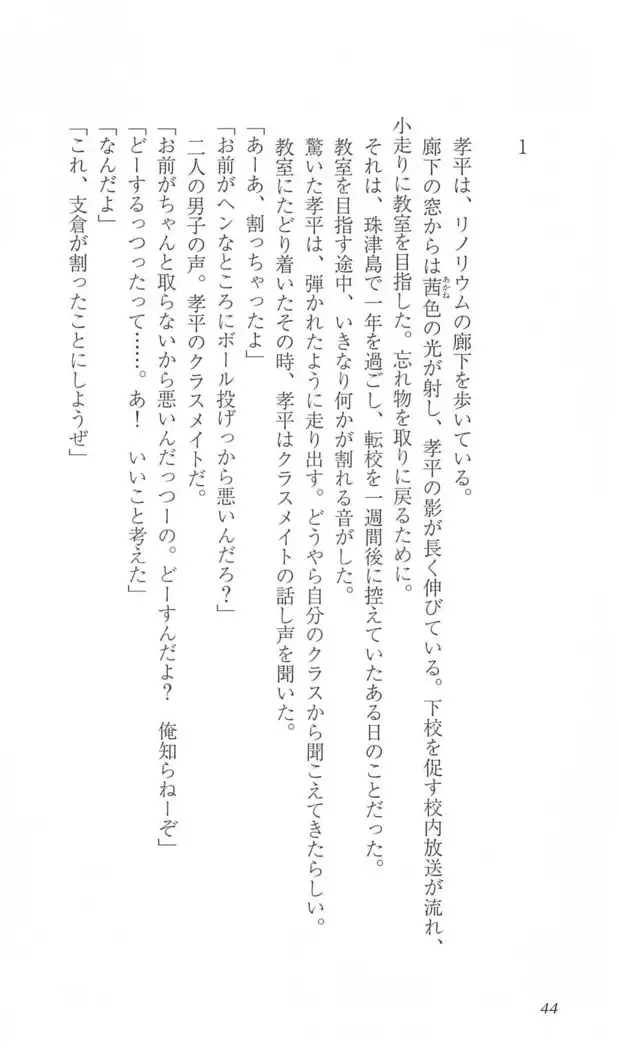 1
孝平は、リノリウムの廊下を歩いている。
廊下の窓からは茜色の光が射し、孝平の影が長く伸びている。下校を促す校内放送が流れ、
あかね
小走りに教室を目指した。忘れ物を取りに戻るために。
それは、珠津島で一年を過ごし、転校を一週間後に控えていたある日のことだった。
教室を目指す途中、いきなり何かが割れる音がした。
驚いた孝平は、弾かれたように走り出す。どうやら自分のクラスから聞こえてきたらしい。
教室にたどり着いたその時、孝平はクラスメイトの話し声を聞いた。
「あーあ、割っちゃったよ」
「お前がヘンなところにボール投げっから悪いんだろ？」
二人の男子の声。孝平のクラスメイトだ。
「お前がちゃんと取らないから悪いんだっつーの。どーすんだよ？　俺知らねーぞ」
「どーするっつったって……。あ！　いいこと考えた」
「なんだよ」
「これ、支倉が割ったことにしようぜ」
44